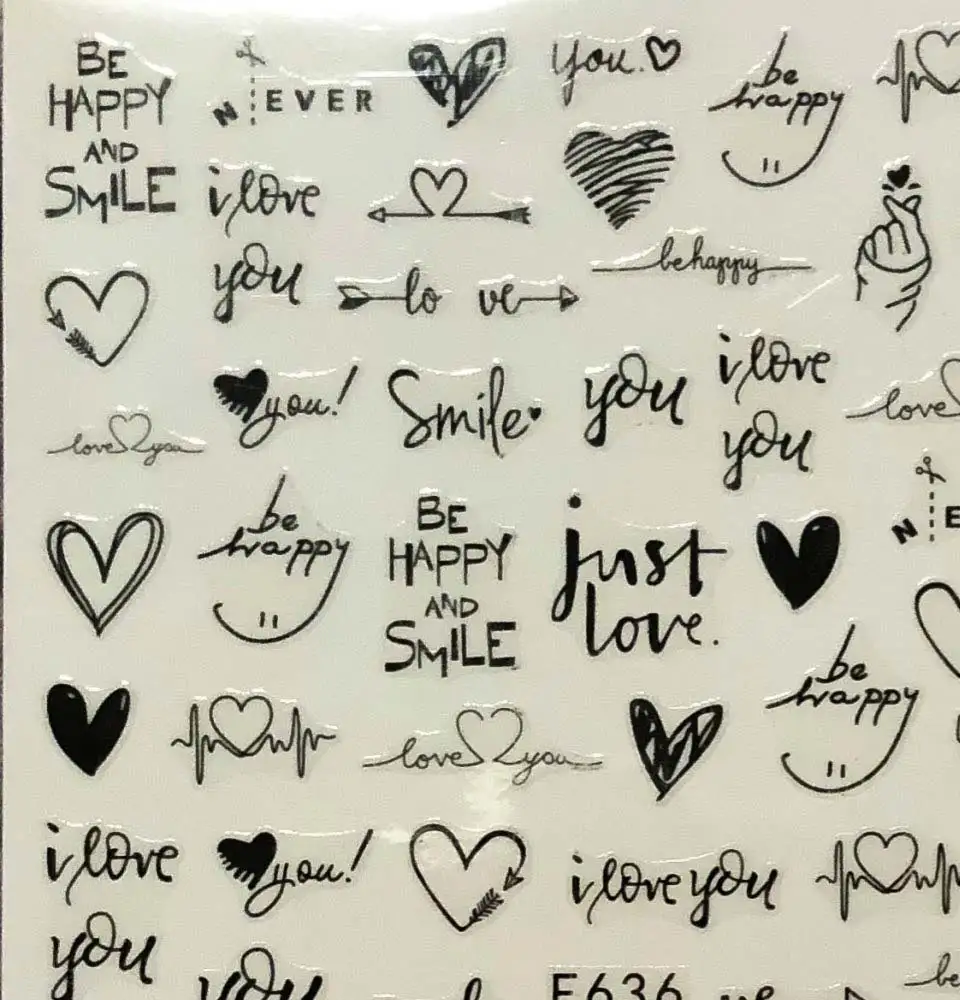 BE
HAPPY
AND
SMILE
N EVER
you.
be
happy
i love
you
lo ve
be happy
love you
you!
Smile
you
i love
you
love
N E
be
happy
BE
HAPPY
AND
SMILE
just
love.
be
happy
love you
i love
you
you!
i love you
you
F636
ve
be